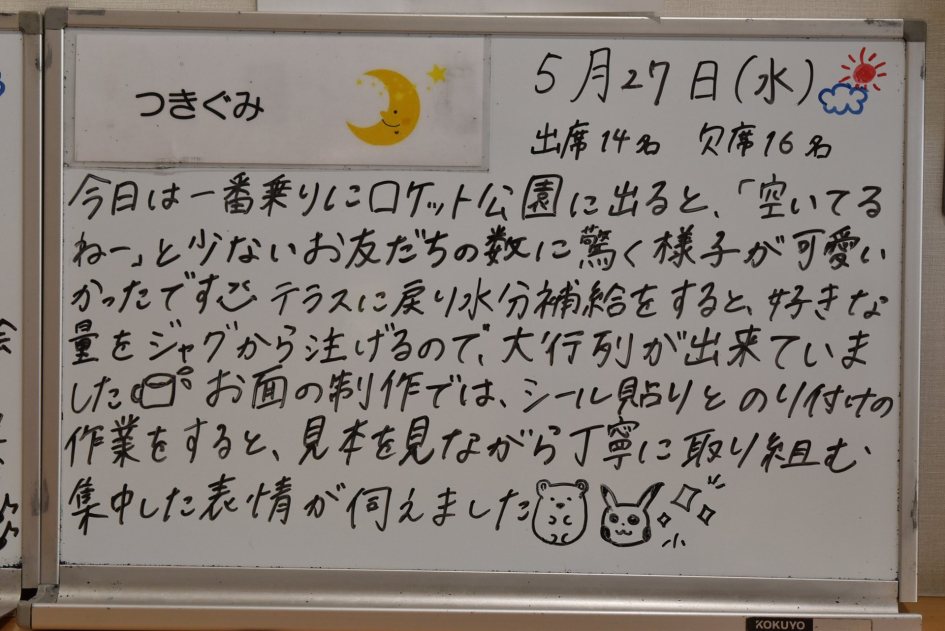 つきぐみ
5月27日(水)
出席14名 欠席16名
今日は一番乗りにロケット公園に出ると、「空いてる
ねー」と少ないお友だちの数に驚く様子が可愛い
かったです テラスに戻り水分補給をすると、好きな
量をジャグから注げるので、大行列が出来ていま
した お面の制作では、シール貼りとのり付けの
作業をすると、見本を見ながら丁寧に取り組む
集中した表情が伺えました
KOKUYO